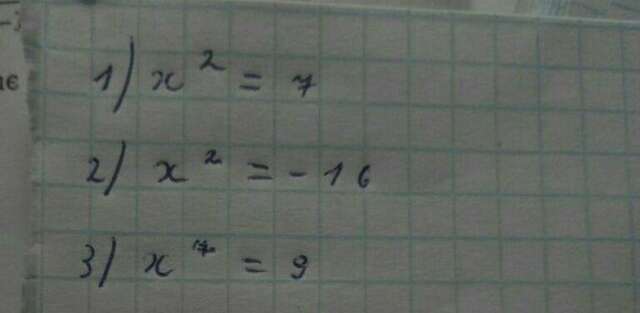 1) x² = 7
2) x² = -16
3) x = 9